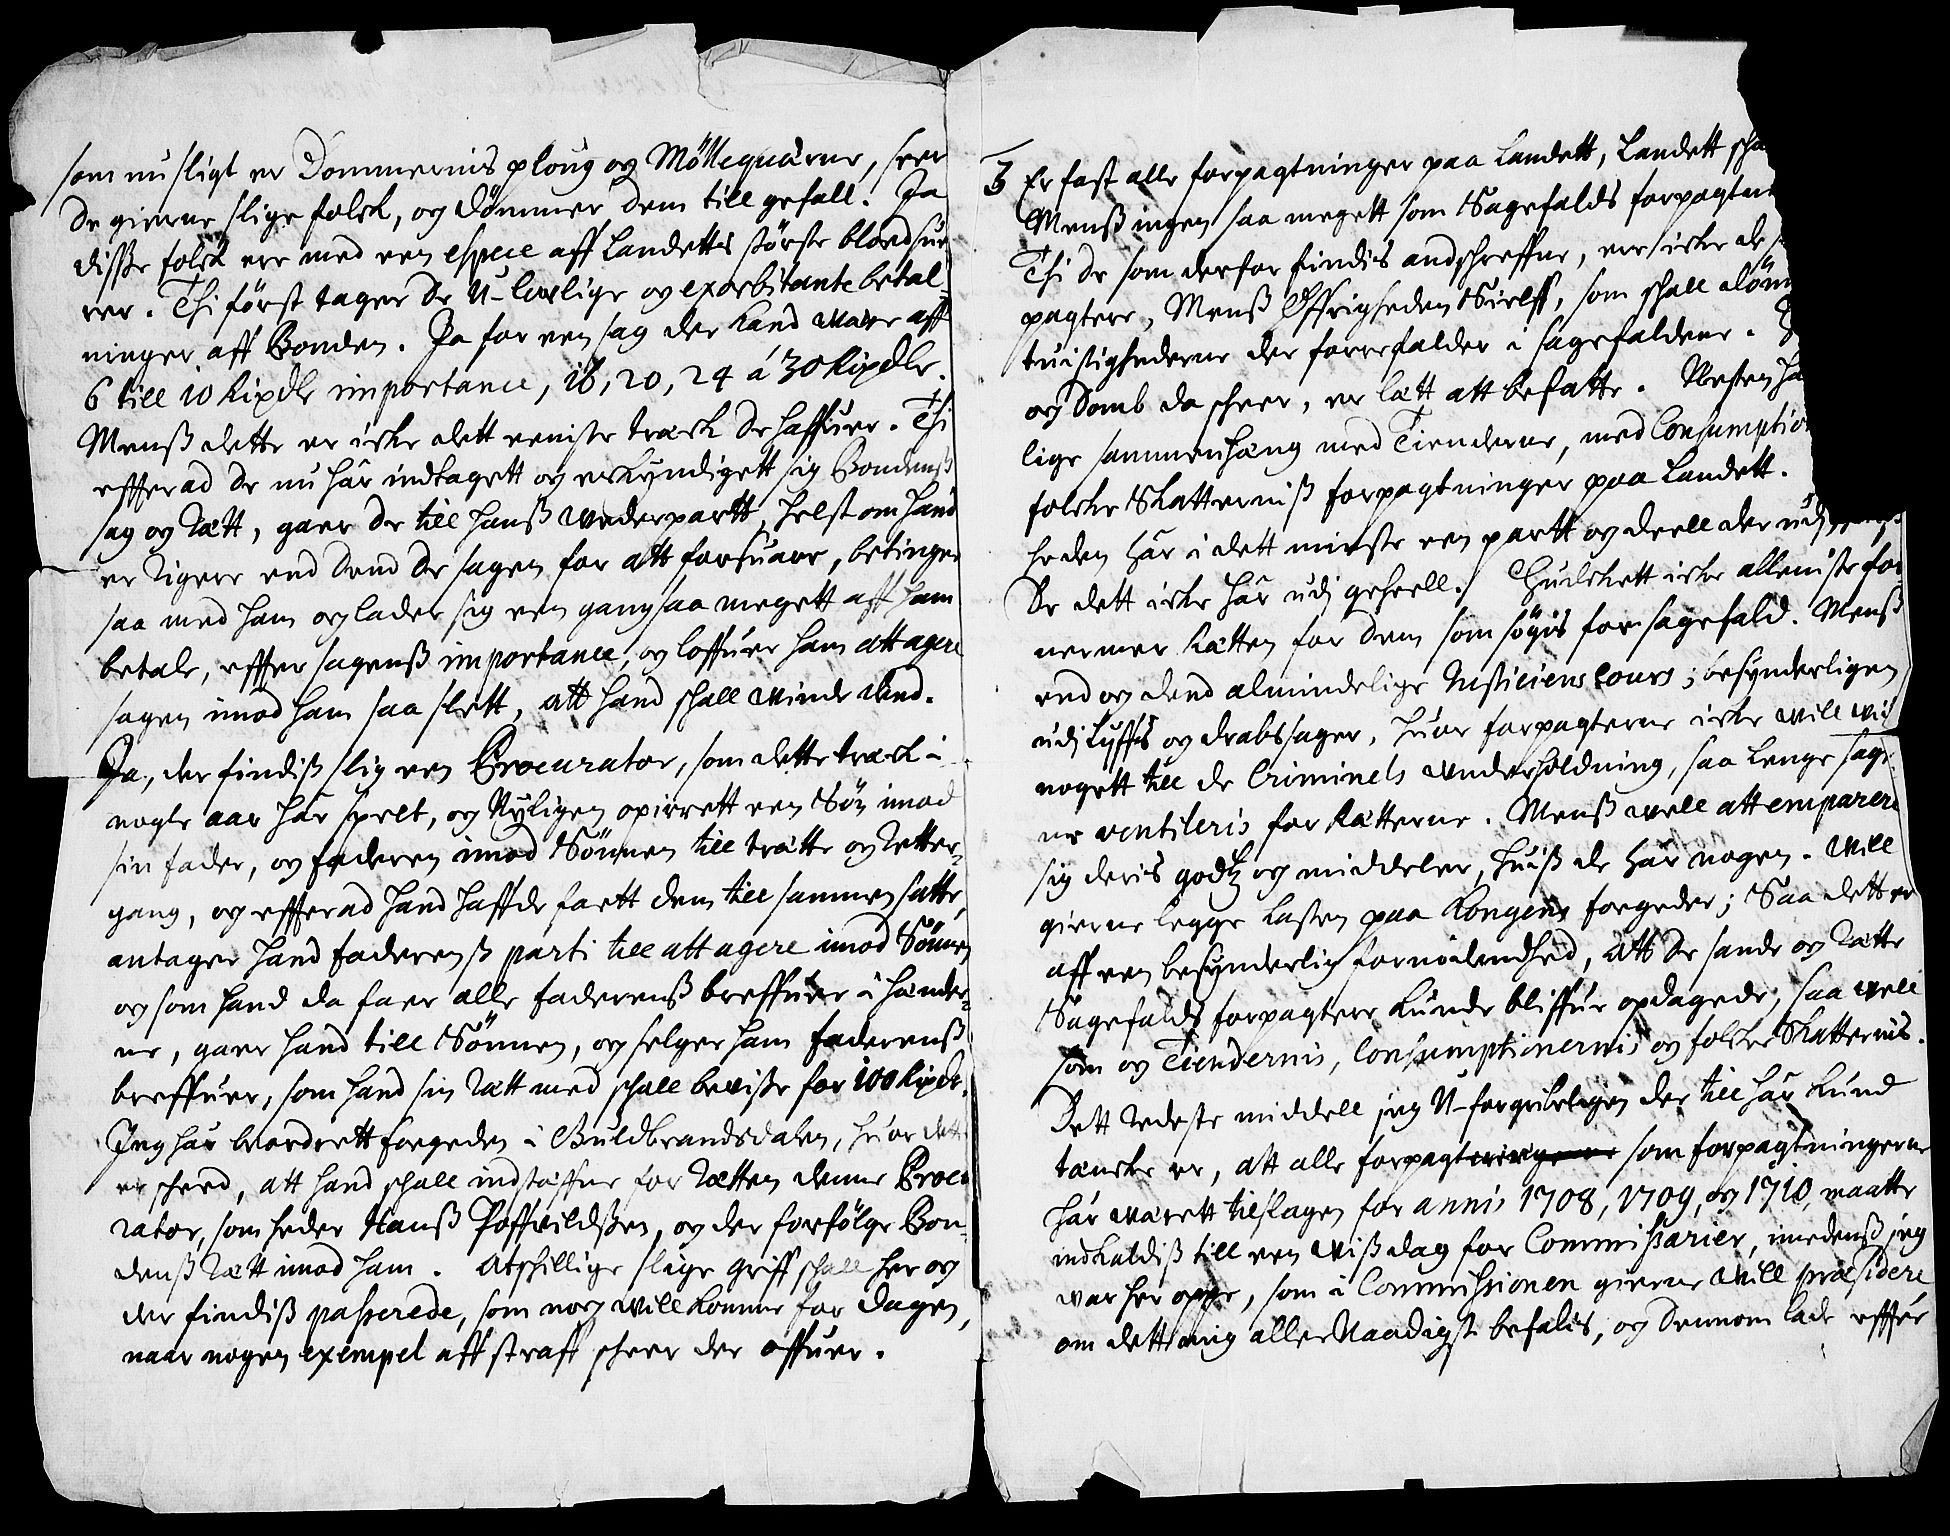 som nu sligt er Dommernis ploug og Möllequärne, seer
de gierne slige folck, og dömmer dem till gefall. Ja
disse folck ere med een espece aff Landettes störste blodsue
rer. Thi först tager de U-lovlige og exorbitante betal-
ninger aff Bonden. Ja for een sag der kand være aff
6 till 10 Rixdlr importance, 16, 20, 24 á 30 Rixdlr.
Menß dette er icke dett eeniste træck de haffuer. Thi
efferad de nu här indtagett og erkyndigett sig Bondenß
sag og Rätt, gaar de till hanß wederpartt, helst om hand
er Rigere end dend de sagen for att forsuare, betinger
saa med ham og lader sig een gang saa megett aff ham
betale, effter sagenß importance, og loffuer ham att agere
sagen imod ham saa slett, att hand schall winde dend.
Ja, der findiß slig een Procurator, som dette træck i
nogle aar här spelt, og Nyligen opirrett een Sön imod
sin fader, og faderen imod Sönnen till trætte og Retter-
gang, og efferad hand haffde faatt dem till sammen satte,
antager hand faderenß parti till att agere imod Sönnen
og som hand da faar alle faderenß breffuer i hænder-
ne, gaar hand till Sönnen, og selger ham faderenß
breffuer, som hand sin Rätt med schall bevisse for 100 Rixdr.
Jeg här beordrett fogeden i Guldbrandsdalen, huor dett
er scheed, att hand schall indstæffne for Rætten denne Procu
rator, som heder Hanß Poffvildßen, og der forfölge Bon-
denß Rätt imod ham. Atschillige slige griff schall her og
der findiß passerede, som nog will komme for dagen,
naar nogen exempel aff straff scheer der offuer.
3 Er fast alle forpagtninger paa Landett, Landett scha
Menß ingen saa megett som Sagefalds forpagtni
Thi de som derfor findis andschreffne, ere icke de
pagtere, Menß Öffrigheden Sielff, som schall döm
tuistighederne der forefalder i sagefaldene.
og Domb da scheer, er lætt att befatte. Nesten ha
lige sammenhæng med Tienderne, med Consumptio
folcke Skatterniß forpagtninger paa Landett.
heden här i dett minste een partt og deell der udj,
De dett icke här udj geheell. Huilckett icke alleniste for
nermer Rätten for dem som søgis for sagefald. Menß
end og dend almindelige Justiciens cours; besynderligen
udj Lyffs og drabssager, huor forpagterne icke will wid
nogett till de Criminels underholdning, saa lenge sage
ne ventileris for Rætterne. Menß well att emparere
sig deris godtz og middeler, huiß de här nogen. Will
gierne legge Lasten paa Kongens fogeder; Saa dett er
aff een besynderlig fornödendhed, att de sande og Rätte
Sagefalds forpagtere kunde bliffue opdagede, saa well
som og Tiendernis, Consumptionernis og folcke Skatternis.
Dett Redeste middell jeg U-forgribeligen der till här kund
tæncke er, att alle forpagtninger som forpagtningerne
här værett tilslagen for annis 1708, 1709, og 1710, maatte
indkaldiß till een wiß dag for Commissarier, imedenß jeg
war her oppe, som i Commissionen gierne will præsidere
om dett mig aller Naadigst befales, og dennom lade effter